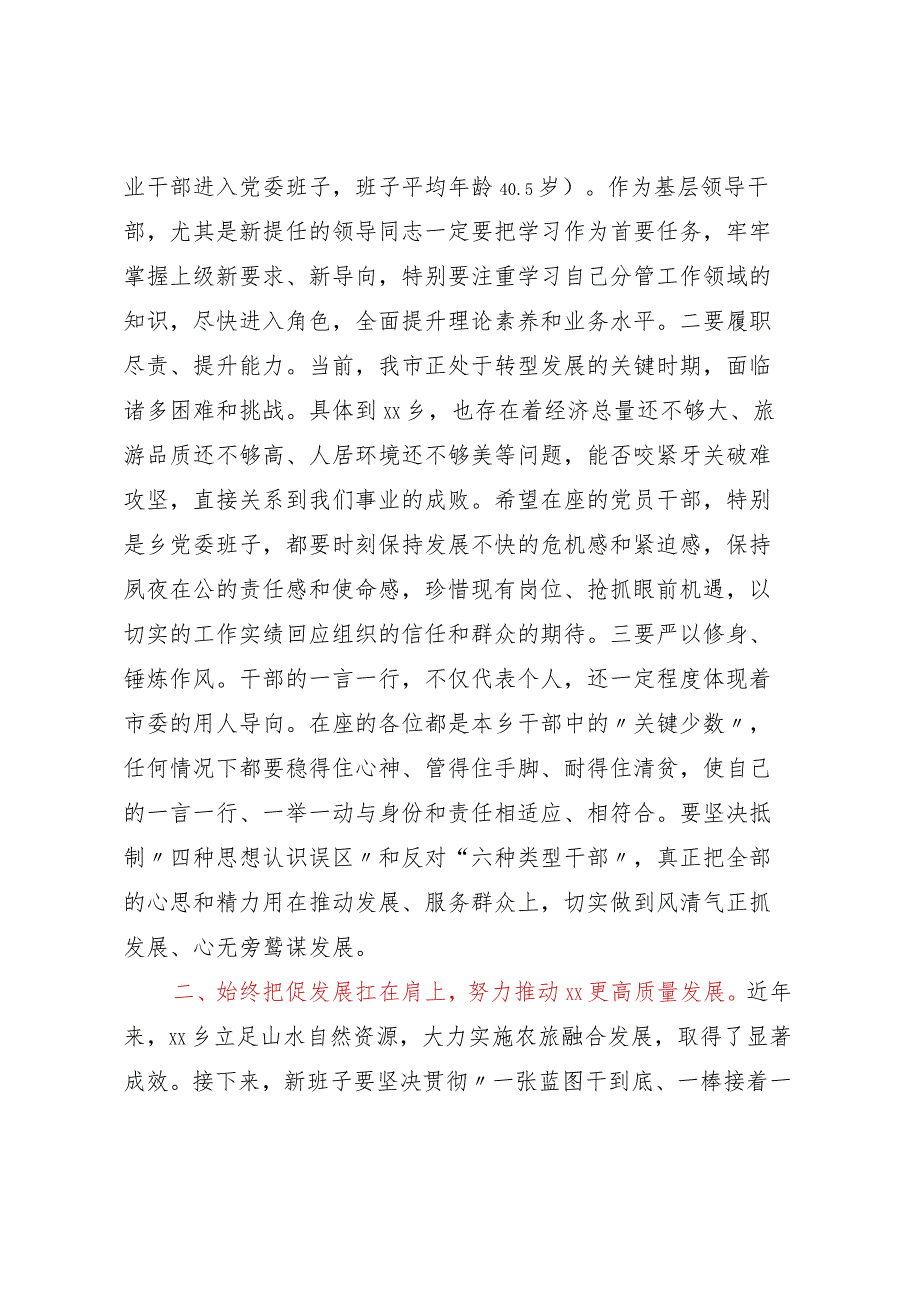 业干部进入党委班子，班子平均年龄 40.5 岁）。作为基层领导干
部，尤其是新提任的领导同志一定要把学习作为首要任务，牢牢
掌握上级新要求、新导向，特别要注重学习自己分管工作领域的
知识，尽快进入角色，全面提升理论素养和业务水平。二要履职
尽责、提升能力。当前，我市正处于转型发展的关键时期，面临
诸多困难和挑战。具体到 xx 乡，也存在着经济总量还不够大、旅
游品质还不够高、人居环境还不够美等问题，能否咬紧牙关破难
攻坚，直接关系到我们事业的成败。希望在座的党员干部，特别
是乡党委班子，都要时刻保持发展不快的危机感和紧迫感，保持
夙夜在公的责任感和使命感，珍惜现有岗位、抢抓眼前机遇，以
切实的工作实绩回应组织的信任和群众的期待。三要严以修身、
锤炼作风。干部的一言一行，不仅代表个人，还一定程度体现着
市委的用人导向。在座的各位都是本乡干部中的〃关键少数〃，
任何情况下都要稳得住心神、管得住手脚、耐得住清贫，使自己
的一言一行、一举一动与身份和责任相适应、相符合。要坚决抵
制〃四种思想认识误区〃和反对“六种类型干部〃，真正把全部
的心思和精力用在推动发展、服务群众上，切实做到风清气正抓
发展、心无旁鹫谋发展。
二、始终把促发展扛在肩上，努力推动 xx 更高质量发展。近年
来，xx 乡立足山水自然资源，大力实施农旅融合发展，取得了显著
成效。接下来，新班子要坚决贯彻〃一张蓝图干到底、一棒接着一